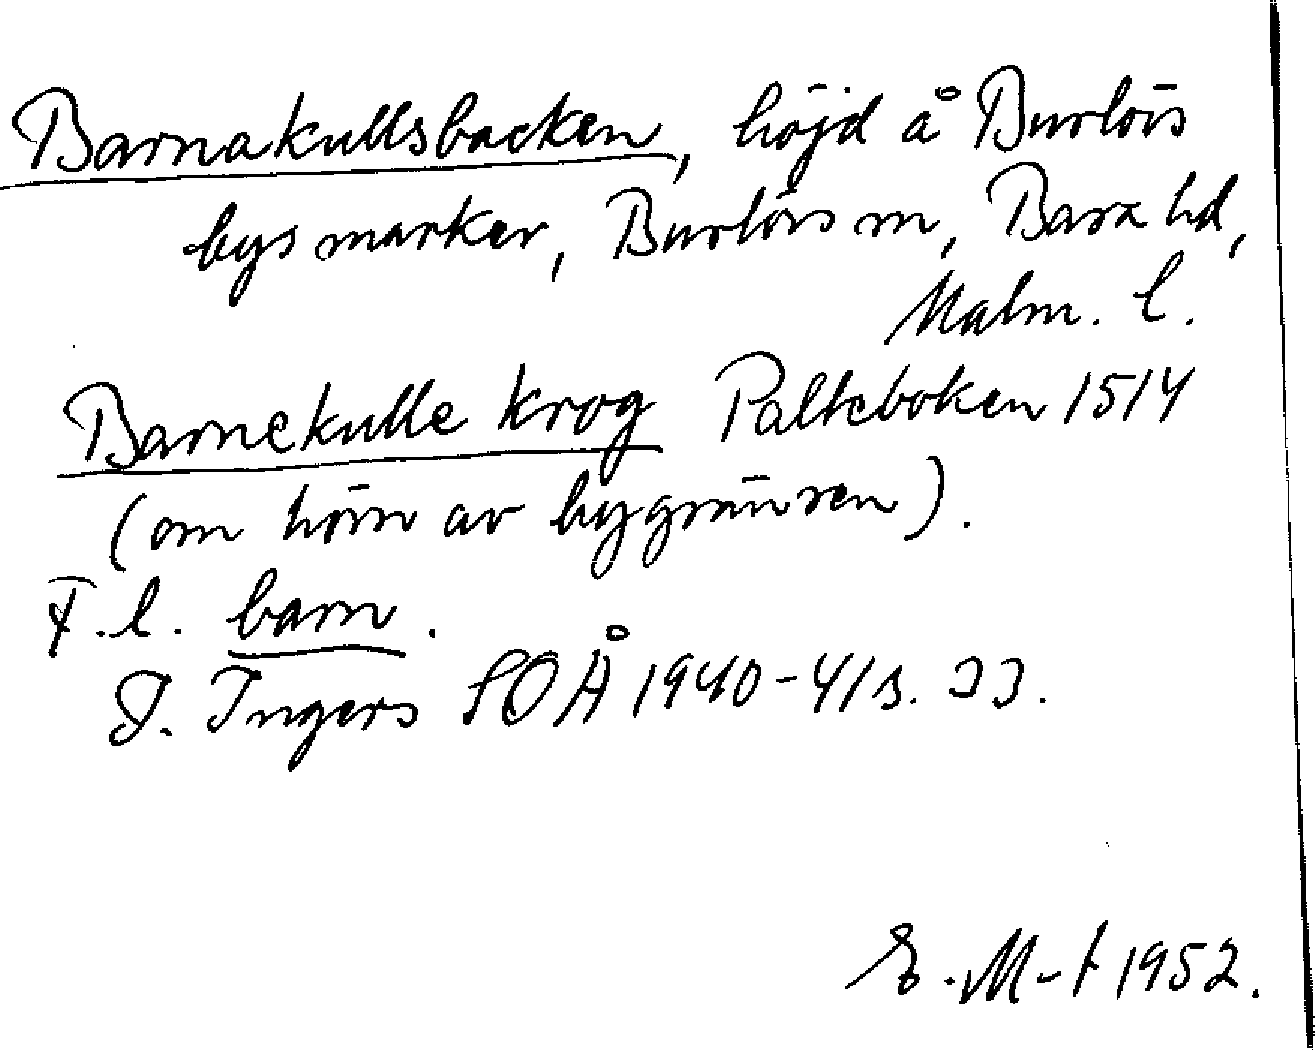 Barnakullsbacken, höjd å Burlövs
bys marker, Burlövs sn, Bara hd,
Malm. l.
Barnekulle krog Palteboken 1514
(om hörn av bygränsen).
F.l. barn.
I. Ingers SOÅ 1940-41 s. 33.
E. M-t 1952.